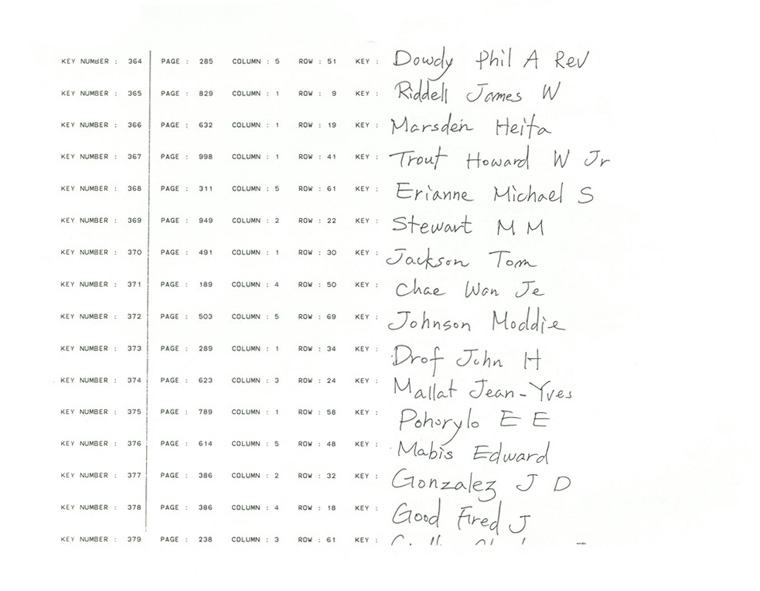 KEY NUMBER : 364 PAGE : 285 COLUMN : 5 ROW : 51 KEY : Dowdy Phil A Rev
KEY NUMBER : 365 PAGE : 829 COLUMN : 1 ROW : 9 KEY : Riddell James W
KEY NUMBER : 366 PAGE : 632 COLUMN : 1 ROW : 19 KEY : Marsden Heita
KEY NUMBER : 367 PAGE : 998 COLUMN : 1 ROW : 41 KEY : Trout Howard W Jr
KEY NUMBER : 368 PAGE : 311 COLUMN : 5 ROW : 61 KEY : Erianne Michael S
KEY NUMBER : 369 PAGE : 949 COLUMN : 2 ROW : 22 KEY : Stewart M M
KEY NUMBER : 370 PAGE : 491 COLUMN : 1 ROW : 30 KEY : Jackson Tom
KEY NUMBER : 371 PAGE : 189 COLUMN : 4 ROW : 50 KEY : Chae Won Je
KEY NUMBER : 372 PAGE : 503 COLUMN : 5 ROW : 69 KEY : Johnson Moddie
KEY NUMBER : 373 PAGE : 289 COLUMN : 1 ROW : 34 KEY : Drof John H
KEY NUMBER : 374 PAGE : 623 COLUMN : 3 ROW : 24 KEY : Mallat Jean-Yves
KEY NUMBER : 375 PAGE : 789 COLUMN : 1 ROW : 58 KEY : Pohorylo E E
KEY NUMBER : 376 PAGE : 614 COLUMN : 5 ROW : 48 KEY : Mabis Edward
KEY NUMBER : 377 PAGE : 386 COLUMN : 2 ROW : 32 KEY : Gonzalez J D
KEY NUMBER : 378 PAGE : 386 COLUMN : 4 ROW : 18 KEY : Good Fired J
KEY NUMBER : 379 PAGE : 238 COLUMN : 3 ROW : 61 KEY :